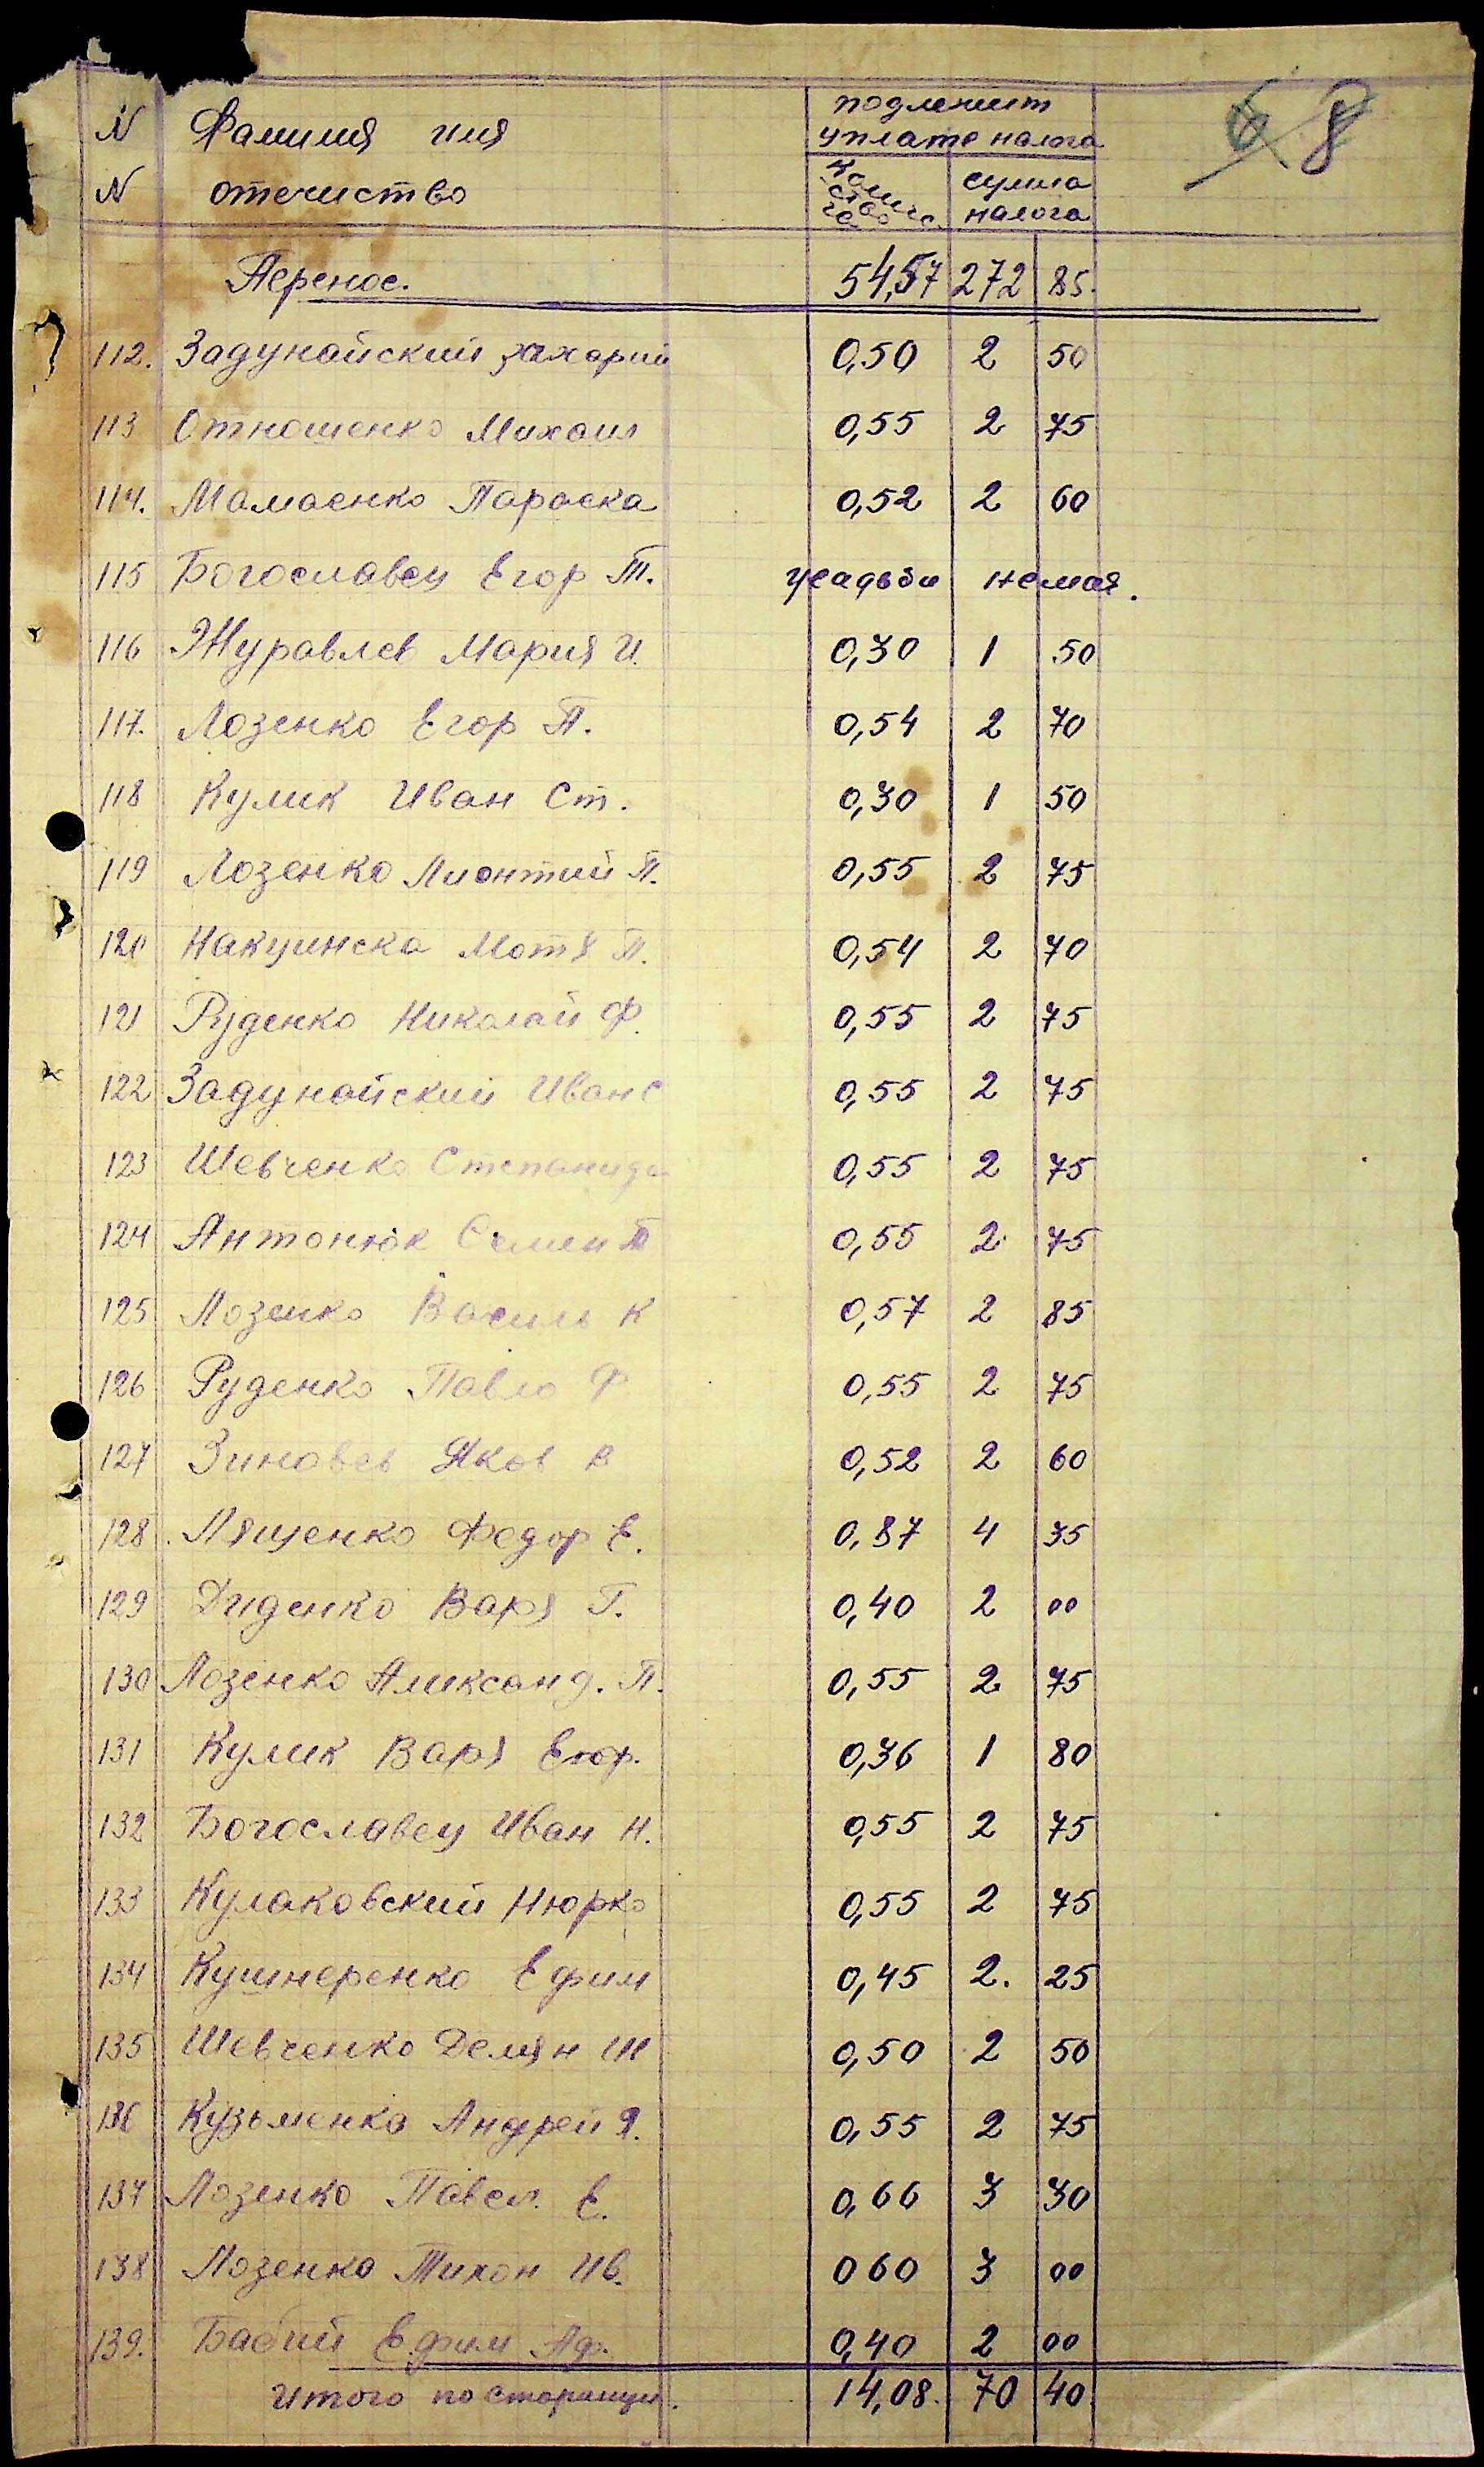 N Фамилия имя подлежит
уплате налога
6 8
N отечиство сумма
налога
Перенос. 54,57 272 85.
112. Задунайский Захарий 0,50 2 50
113 Отношенко Михаил 0,55 2 75
114. Мамаенко Параска 0,52 2 60
115 Богославец Егор Т. усадьби немая.
116 Журавлев Мария И. 0,30 1 50
117. Лозенко Егор П. 0,54 2 70
118 Кулик Иван Ст. 0,30 1 50
119 Лозенко Лионтий П. 0,55 2 75
120 Мотя П. 0,54 2 70
121 Руденко Николай Ф. 0,55 2 75
122 Задунайский Иван С 0,55 2 75
123 Шевченко Степанида 0,55 2 75
124 Антонюк Семен П 0,55 2 75
125 Лозенко Василь К 0,57 2 85
126 Руденко Павло Ф 0,55 2 75
127 Зиновев Яков В 0,52 2 60
128. Лященко Федор Е. 0,87 4 35
129 Диденко Варя Г. 0,40 2 00
130 Лозенко Александ. П. 0,55 2 75
131 Кулик Варя Егор. 0,36 1 80
132 Богославец Иван Н. 0,55 2 75
133 Кулаковский Нюрка 0,55 2 75
134 Кушнеренко Ефим 0,45 2. 25
135 Шевченко Демян Ш 0,50 2 50
136 Кузьменко Андрей Я. 0,55 2 75
137 Лозенко Павел. Е. 0,66 3 30
138 Лозенко Тихон Ив. 0 60 3 00
139. Бабий Ефим Аф. 0,40 2 00
Итого по сторанци. 14,08. 70 40